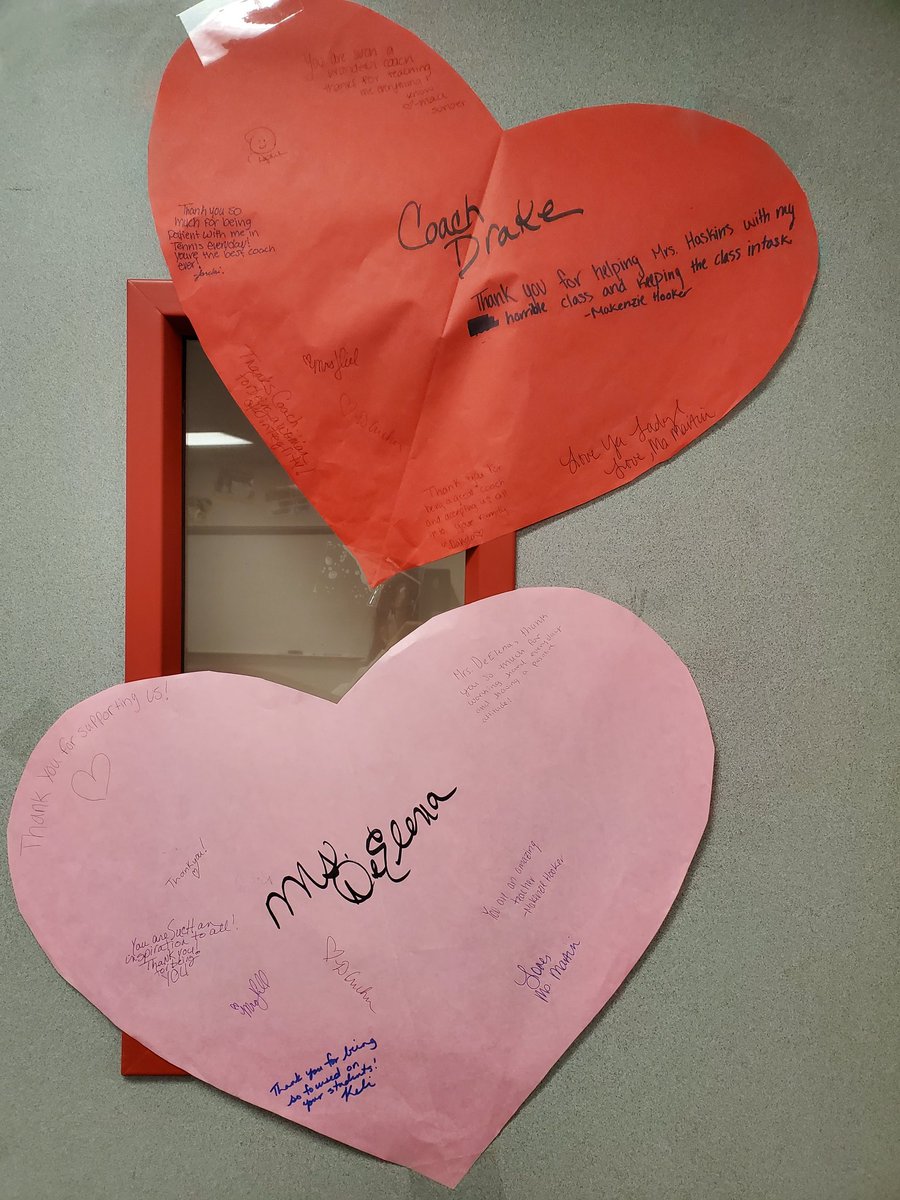 You are such a
wonderful coach
thanks for teaching
me everything I
know
Thank you so
much for being
patient with me in
Tennis everyday!
you're the best coach
ever!
Coach
Drake
Thank you for helping Mrs. Haskins with my
horrible class and keeping the class intask.
-Makenzie Hooker
Thanks Coach
Love Ya Lady!
Love, Ms Martin
Thank you for
being a great coach
and accepting us all
into your family
Mrs. DeElena, thanks
you so much for
working hard everyday
and having a positive
attitude!
Thank you for supporting us!
Thank you!
Ms.
DeElena
You are an amazing
teacher
-Makenzie Hooker
You are Such an
inspiration to all!
Thank you
for being
YOU
Loves
Ms Martin
Thank you for being
so focused on
your students!